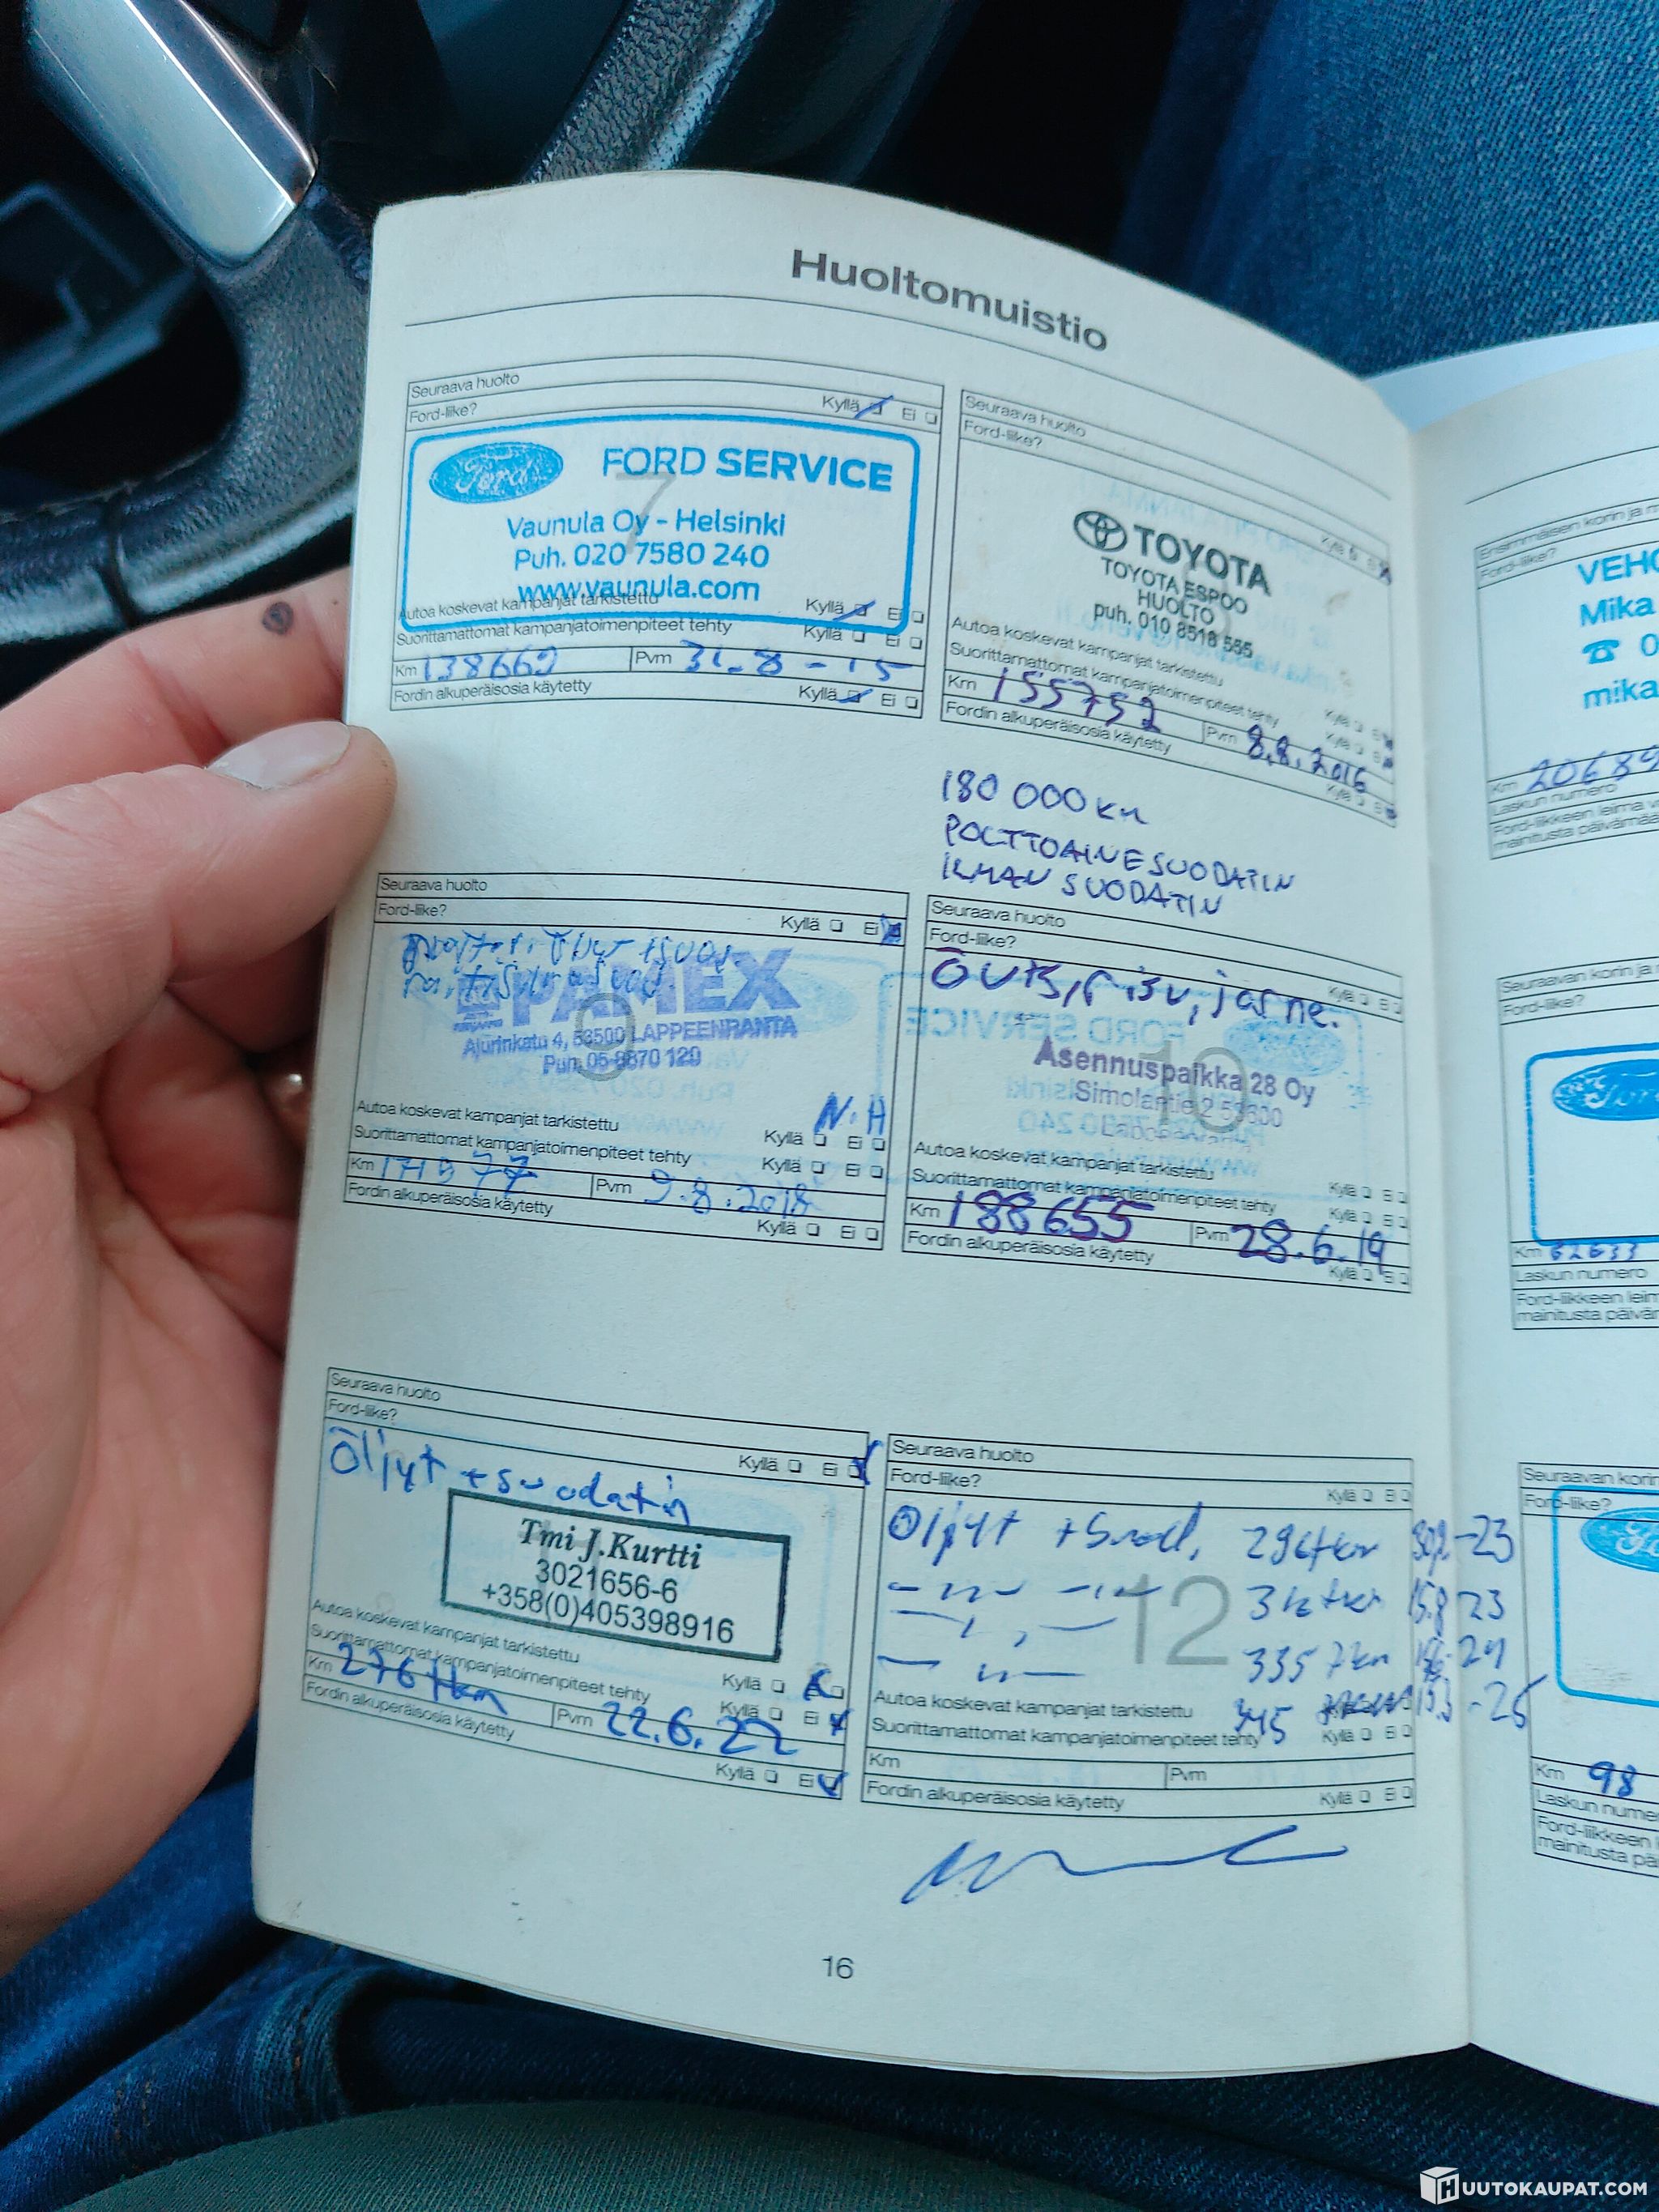 Huoltomuistio
Seuraava huolto
Ford-liike?
Kyllä Ei
7
Ford
FORD SERVICE
Vaunula Oy - Helsinki
Puh. 020 7580 240
www.vaunula.com
Autoa koskevat kampanjat tarkistettu
Kyllä Ei
Suorittamattomat kampanjatoimenpiteet tehty
Kyllä Ei
Km 138669 Pvm 31.8-15
Fordin alkuperäisosia käytetty
Kyllä Ei
Seuraava huolto
Ford-liike?
Kyllä Ei
TOYOTA
TOYOTA ESPOO
HUOLTO
puh. 010 8518 565
Autoa koskevat kampanjat tarkistettu
Kyllä Ei
Suorittamattomat kampanjatoimenpiteet tehty
Kyllä Ei
Km 155752 Pvm 8.8.2016
Fordin alkuperäisosia käytetty
Kyllä Ei
180 000 km
POLTTOAINESUODATIN
ILMAN SUODATIN
Seuraava huolto
Ford-liike?
Kyllä Ei
9
PAMEX
Ajurinkatu 4, 53500 LAPPEENRANTA
N.H
Autoa koskevat kampanjat tarkistettu
Kyllä Ei
Suorittamattomat kampanjatoimenpiteet tehty
Kyllä Ei
Km Pvm 9.8.2018
Fordin alkuperäisosia käytetty
Kyllä Ei
Seuraava huolto
Ford-liike?
Kyllä Ei
10
Asennuspaikka 28 Oy
Simolantie 2 53600
Autoa koskevat kampanjat tarkistettu
Kyllä Ei
Suorittamattomat kampanjatoimenpiteet tehty
Kyllä Ei
Km 188655 Pvm 28.6.19
Fordin alkuperäisosia käytetty
Kyllä Ei
Seuraava huolto
Ford-liike?
Kyllä Ei
Öljyt + suodatin
Tmi J.Kurtti
3021656-6
+358(0)405398916
Autoa koskevat kampanjat tarkistettu
Kyllä
Suorittamattomat kampanjatoimenpiteet tehty
Kyllä Ei
Km 276 tkm Pvm 22.6.22
Fordin alkuperäisosia käytetty
Kyllä Ei
Seuraava huolto
Ford-liike?
Kyllä Ei
12
Öljyt + Suod. 296tkm
15.8 23
335 tkm
Autoa koskevat kampanjat tarkistettu
345
Suorittamattomat kampanjatoimenpiteet tehty
Kyllä Ei
Km Pvm
Fordin alkuperäisosia käytetty
Kyllä Ei
16
Ensimmäisen korin ja
Ford-liike?
VEHO
Mika
mika
Km
Laskun numero
Ford-liikkeen leima
mainitusta päivämää
Seuraavan korin ja
Ford-liike?
Ford
Km 62633
Laskun numero
Ford-liikkeen leim
mainitusta päiväm
Seuraavan korin
Ford-liike?
Km 98
Laskun nume
Ford-liikkeen
mainitusta pä
HUUTOKAUPAT.COM